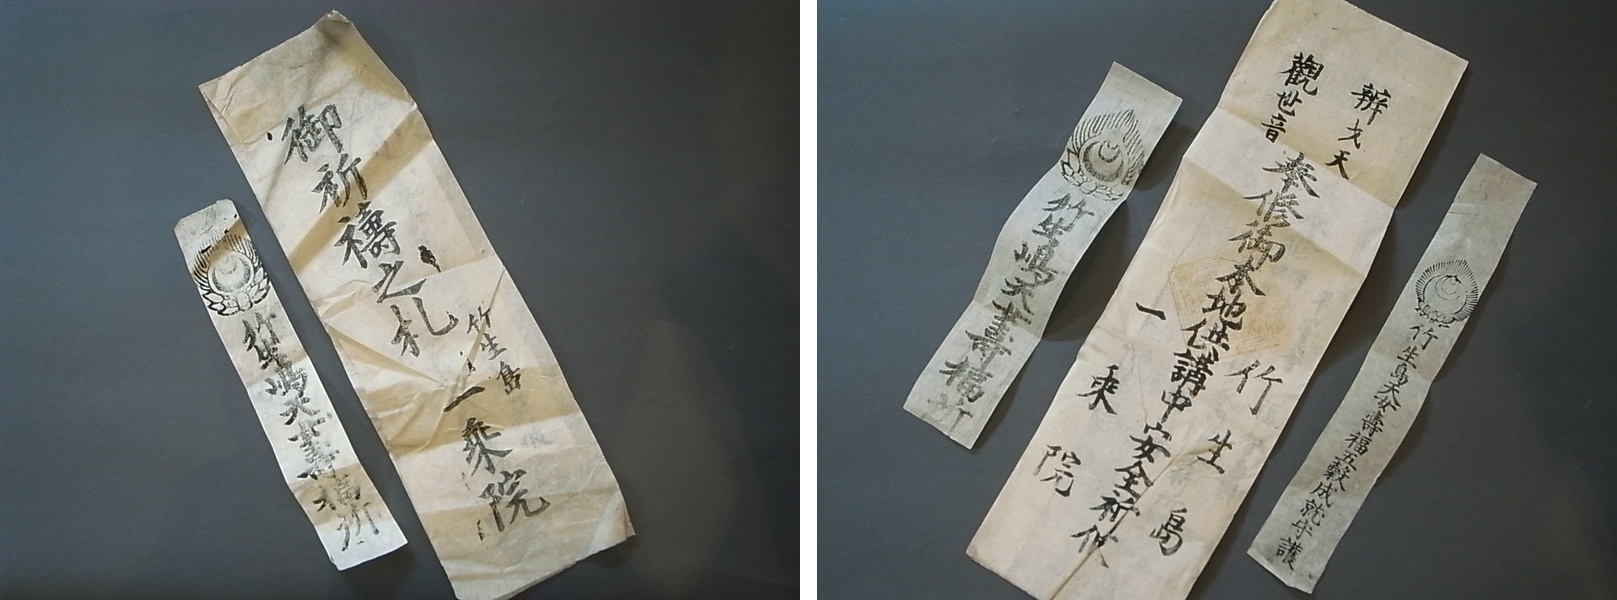 御祈禱之札
竹生島
一乘院
竹生嶋天女壽福祈
辨才天
觀世音
奉修御本地供講中安全祈攸
竹生島
一乘院
竹生嶋天女壽福祈
竹生島天女壽福五穀成就守護